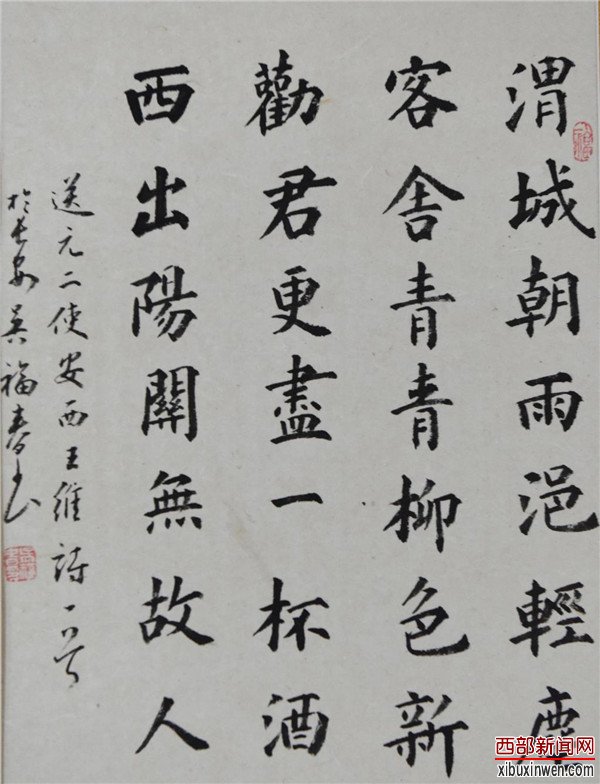 渭城朝雨浥輕塵
客舍青青柳色新
勸君更盡一杯酒
西出陽關無故人
送元二使安西王維詩一首
於長安吳福春书
西部新闻网
xibuxinwen.com